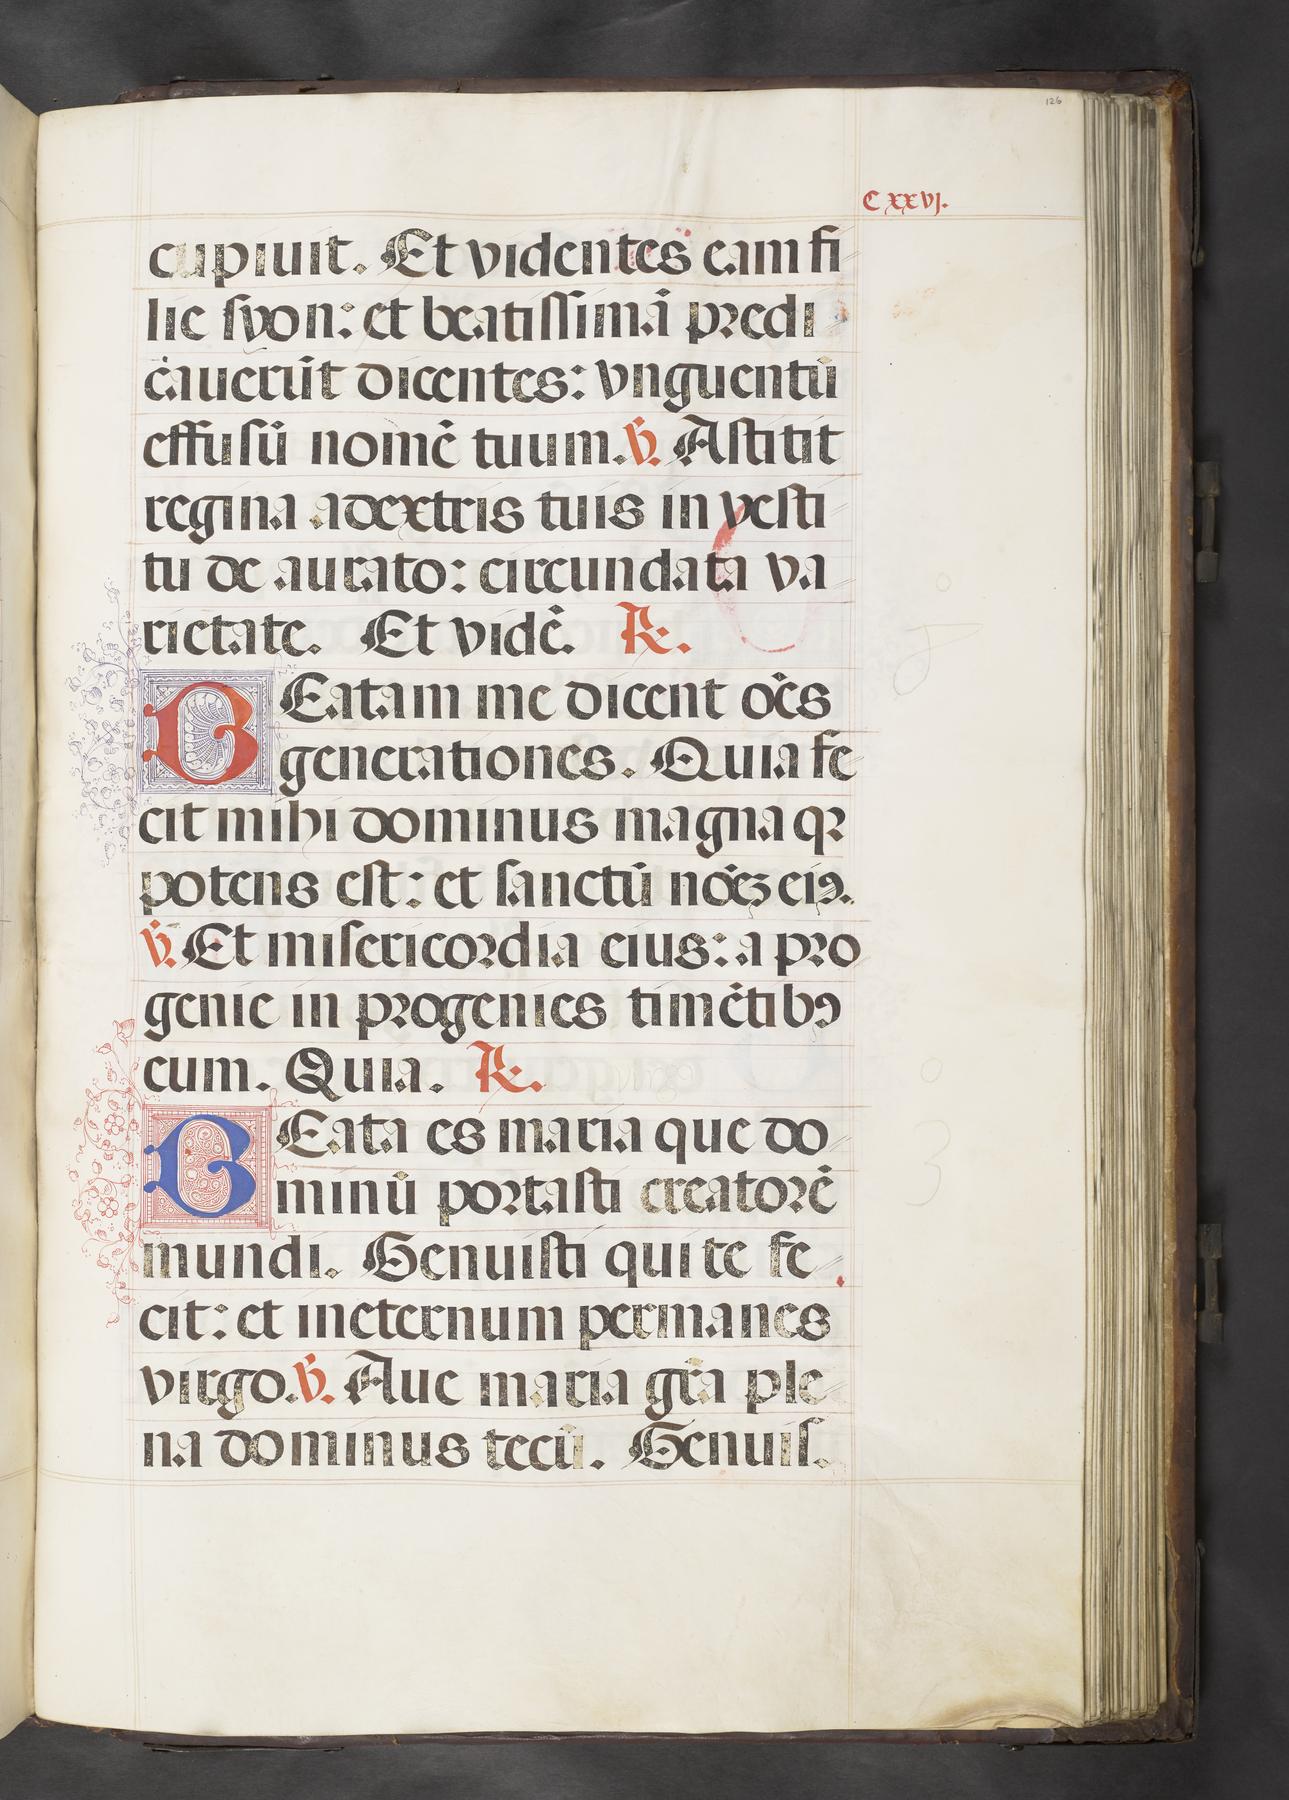 126
C xxvj.
cupiuit. Et videntes eam fi
lie syon: et beatissimā predi
cauerūt dicentes: vnguentū
effusū nomē tuum. ℣. Astitit
regina adextris tuis in vesti
tu de aurato: circundata va
rietate. Et vidē. ℟.
BEatam me dicent oēs
generationes. Quia fe
cit mihi dominus magna qꝛ
potens est: et sanctū noēꝫ eiꝰ.
℣. Et misericordia eius: a pro
genie in progenies timētibꝰ
eum. Quia. ℟.
BEata es maria que do
minū portasti creatorē
mundi. Genuisti qui te fe
cit: et ineternum permanes
virgo. ℣. Aue maria grā ple
na dominus tecū. Genuis.